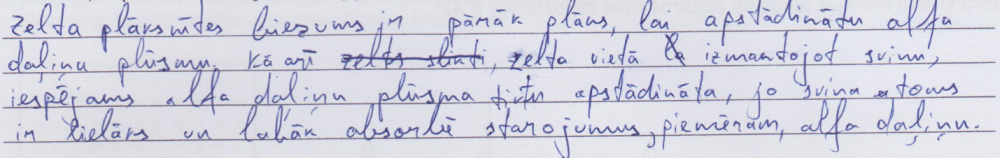 zelta plāksnītes biezums ir pārāk plāns, lai apstādinātu alfa
daļiņu plūsmu. Kā arī zelts slikti, zelta vietā izmantojot svinu,
iespējams alfa daļiņu plūsma tiktu apstādināta, jo svina atoms
ir lielāks un labāk absorbē starojumus, piemēram, alfa daļiņu.